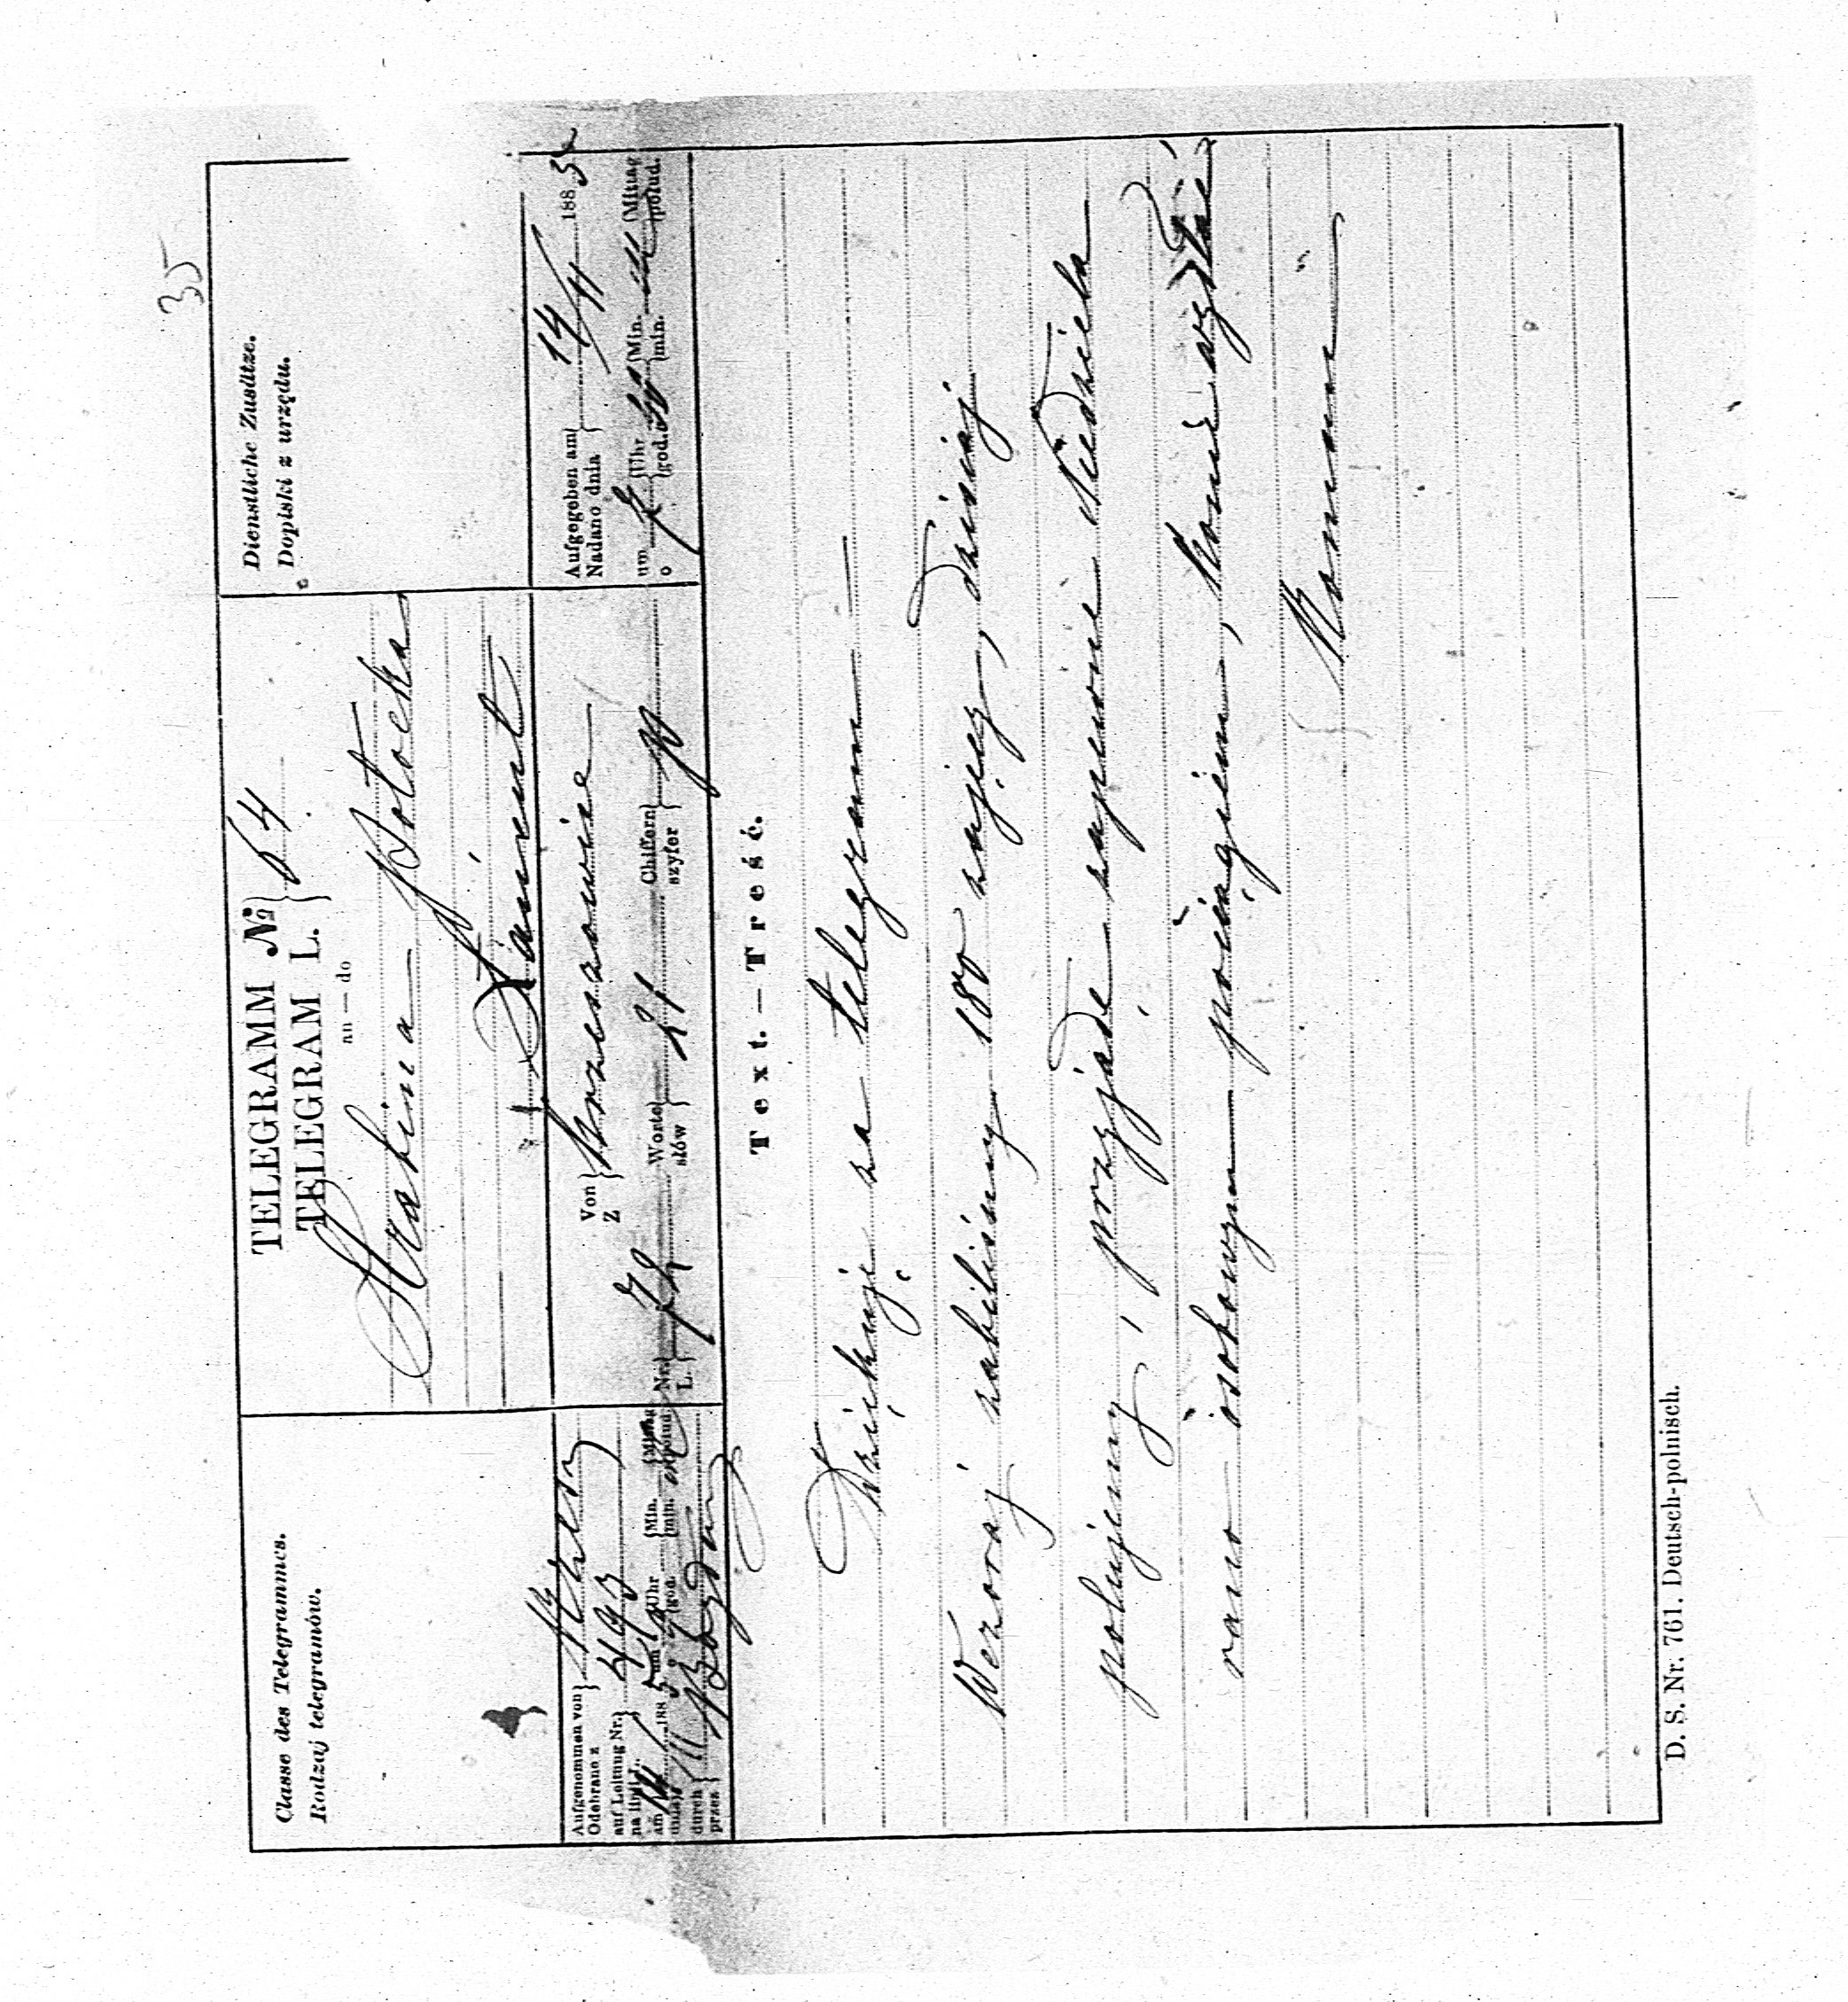 35
Classe des Telegrammes.
Rodzaj telegramów.
TELEGRAMM № 64
TELEGRAM L.
an — do
Hrabina Potocka
Łańcut
Dienstliche Zusätze.
Dopiski z urzędu.
Aufgenommen von
Odebrano z
auf Leitung Nr. 493
na linii L.
am 14/11 188 5 um Uhr Min. Mittag
dnia o god. min. połud.
durch
przez
Von Krzeszowice
Z
Nr. 72 Worte 21 Chiffern
L. słów szyfer
Aufgegeben am 14/11 188 5
Nadano dnia
um 7 Uhr Min. Mittag
o god. min. połud.
Text. — Treść.
Dziękuję za telegram
Wczoraj zabilismy 180 zajęcy, dzisiaj
polujemy, przyjade zapewne Niedziela
rano osobowym pociągiem, konie
Roman
D. S. Nr. 761. Deutsch-polnisch.